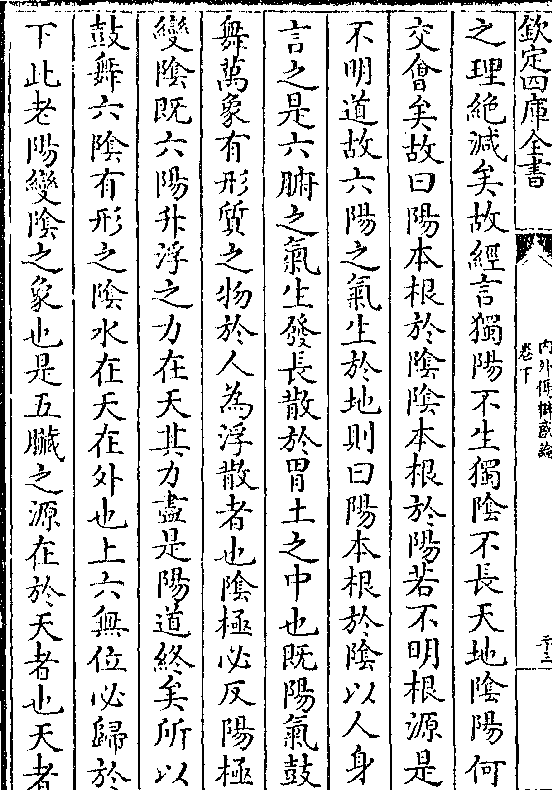 欽定四庫全書
內外傷辨惑論
卷下
之理絶滅矣故經言獨陽不生獨陰不長天地陰陽何
交會矣故曰陽本根於陰陰本根於陽若不明根源是
不明道故六陽之氣生於地則曰陽本根於陰以人身
言之是六腑之氣生發長散於胃土之中也既陽氣鼓
舞萬象有形質之物於人為浮散者也陰極必反陽極
變陰既六陽升浮之力在天其力盡是陽道終矣所以
鼓舞六陰有形之陰水在天在外也上六無位必歸於
下此老陽變陰之象也是五臟之源在於天者也天者